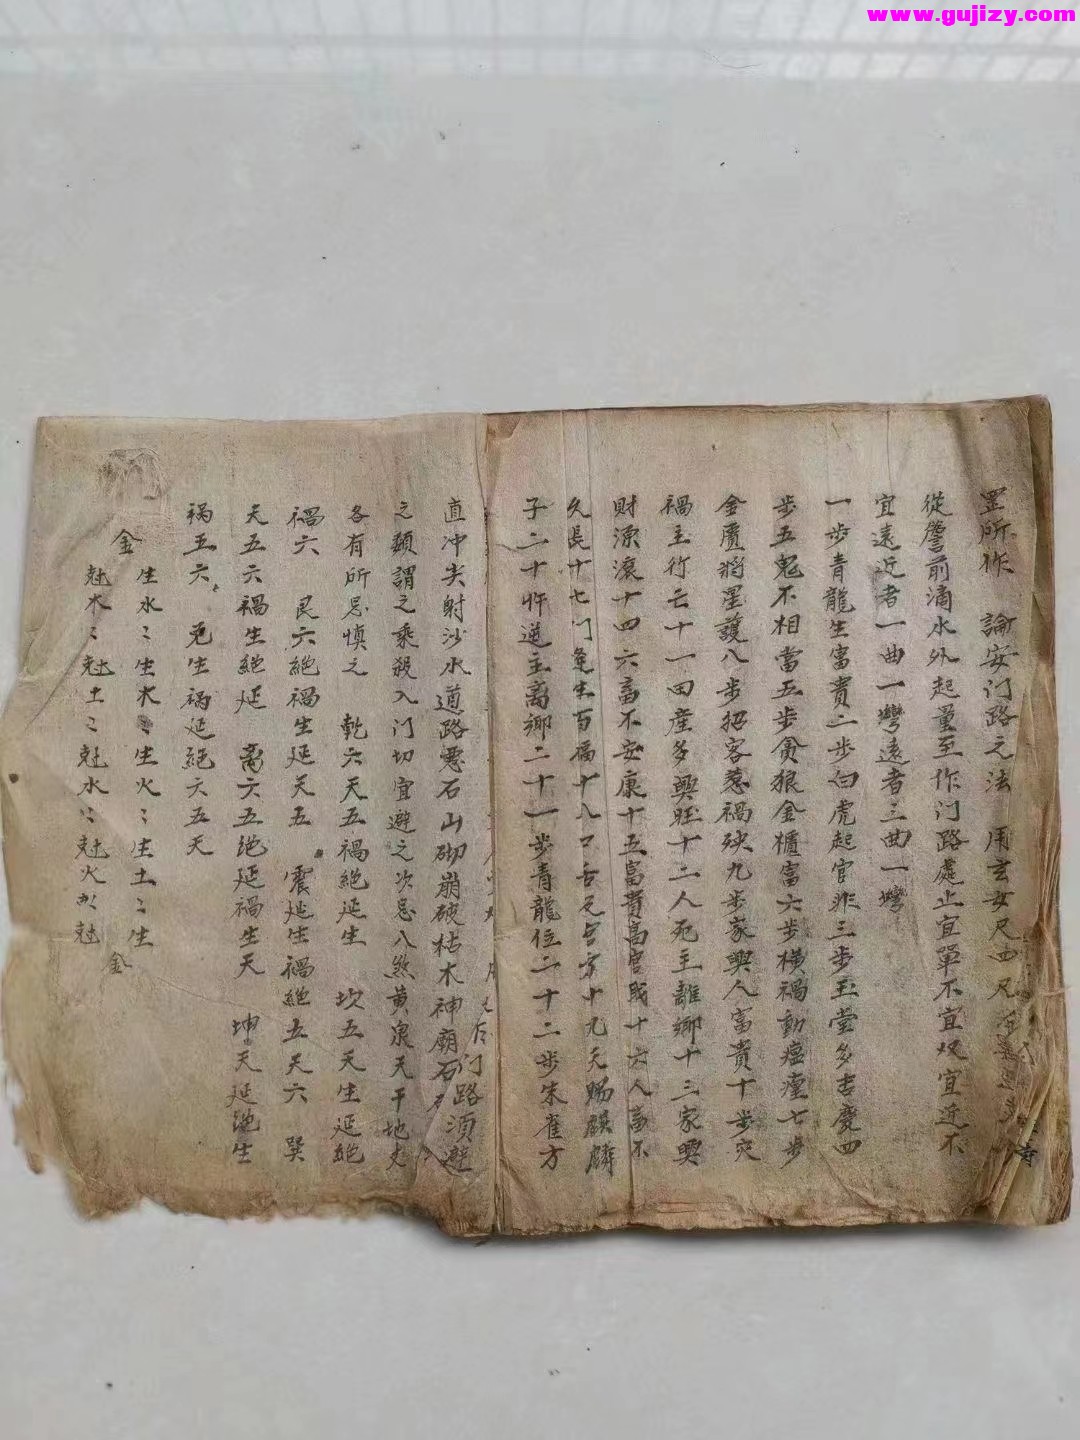 www.gujizy.com
罡所作 論安门路之法 用玄女尺四尺五
從簷前滴水外起量至作门路處止宜單不宜双宜近不
宜遠近者一曲一灣遠者三曲一灣
一步青龍生富貴二步白虎起官非三步玉堂多吉慶四
步五鬼不相當五步貪狼金櫃富六步橫禍動瘟瘟七步
金匱將星護八步招客惹禍殃九步家興人富貴十步灾
禍主行亡十一田産多興旺十二人死主離鄉十三家興
財源滚十四六畜不安康十五富貴高官或十六人畜不
久長十七门逢生百福十八口舌見官家十九天賜麒麟
子二十忤逆主离鄉二十一步青龍位二十二步朱雀方
门路須避
直冲尖射沙水道路悪石山砌崩破枯木神廟石
之類謂之乘殺入门切宜避之次忌八煞黄泉天干地支
各有所忌慎之 乾六天五禍絶延生 坎五天生延絶
禍六 艮六絶禍生延天五 震延生禍絶五天六 巽
天五六禍生絶延 离六五绝延禍生天 坤天延绝生
禍五六 兑生禍延絕六五天
金
生水〻生木〻生火〻生土〻生
金
尅木〻尅土〻尅水〻尅火〻尅